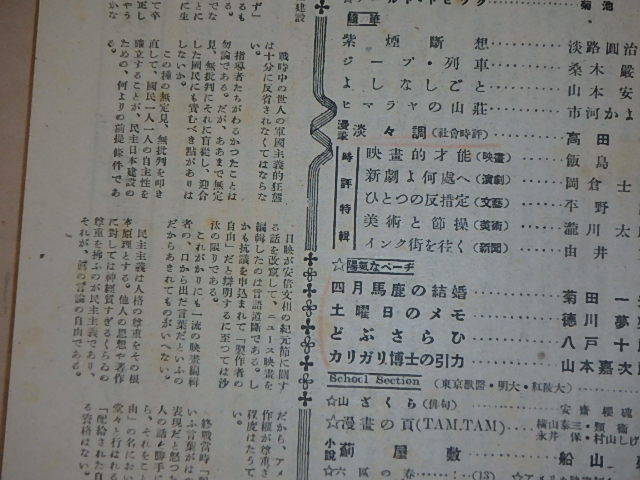 隨筆
紫煙斷想 淡路圓治
ジープ・列車 桑木嚴
よしなしごと 山本安
ヒマラヤの山莊 市河かよ
漫畫 淡々調(社會時評) 高田
時評特輯
映畫的才能(映畫) 飯島
新劇よ何處へ(演劇) 岡倉士
ひとつの反措定(文藝) 平野
美術と節操(美術) 瀧川太
インク街を往く(新聞) 由井
☆陽氣なページ
四月馬鹿の結婚 菊田一
土曜日のメモ 德川夢
どぶさらひ 八戸十
カリガリ博士の引力 山本嘉次
School Section (東京獸醫・明大・和敎大)
☆山ざくら(俳句) 安齋櫻磈
☆漫畫の頁(TAM,TAM) 橫山泰三・類衞 永井保・村山しげ
小說 薊屋敷 船山
建設
戰時中の世人の軍國主義的狂態
は十分に反省されなくてはならな
い。
指導者たちがわるかつたことは
勿論である。だが、あゝまで無定
見、無批判にそれに盲從し、迎合
した國民にも責むべき點がありは
しないか。
この種の無定見、無批判を叩き
直して、國民一人一人の自主性を
確立することが、民主日本建設の
ための、何よりの前提條件であ
日映が安倍文相の紀元節に關す
る話を改竄して、ニュース映畫を
編輯したのは言語道斷である。し
かも抗議を申込まれて「製作者の
自由」だと辯明するに至つては沙
汰の限りである。
これがかりにも一流の映畫編輯
者の、口から出た言葉だといふの
だからあきれてものがいへない。
民主主義は人格の尊重をその根
本原理とする。他人の思想や著作
に對しては神經質すぎるくらゐの
尊重を拂ふのが民主主義であり、
それが、眞の言論の自由である。
だから、アメ
作權が尊重さ
程度はたうて
い。
終戰當時「配
いふ言葉がは
表現だと怒つた
人の話を勝手に
ら、それをこと
由」の名におい
堂々と行はれる
「配給された自
る資格はない。